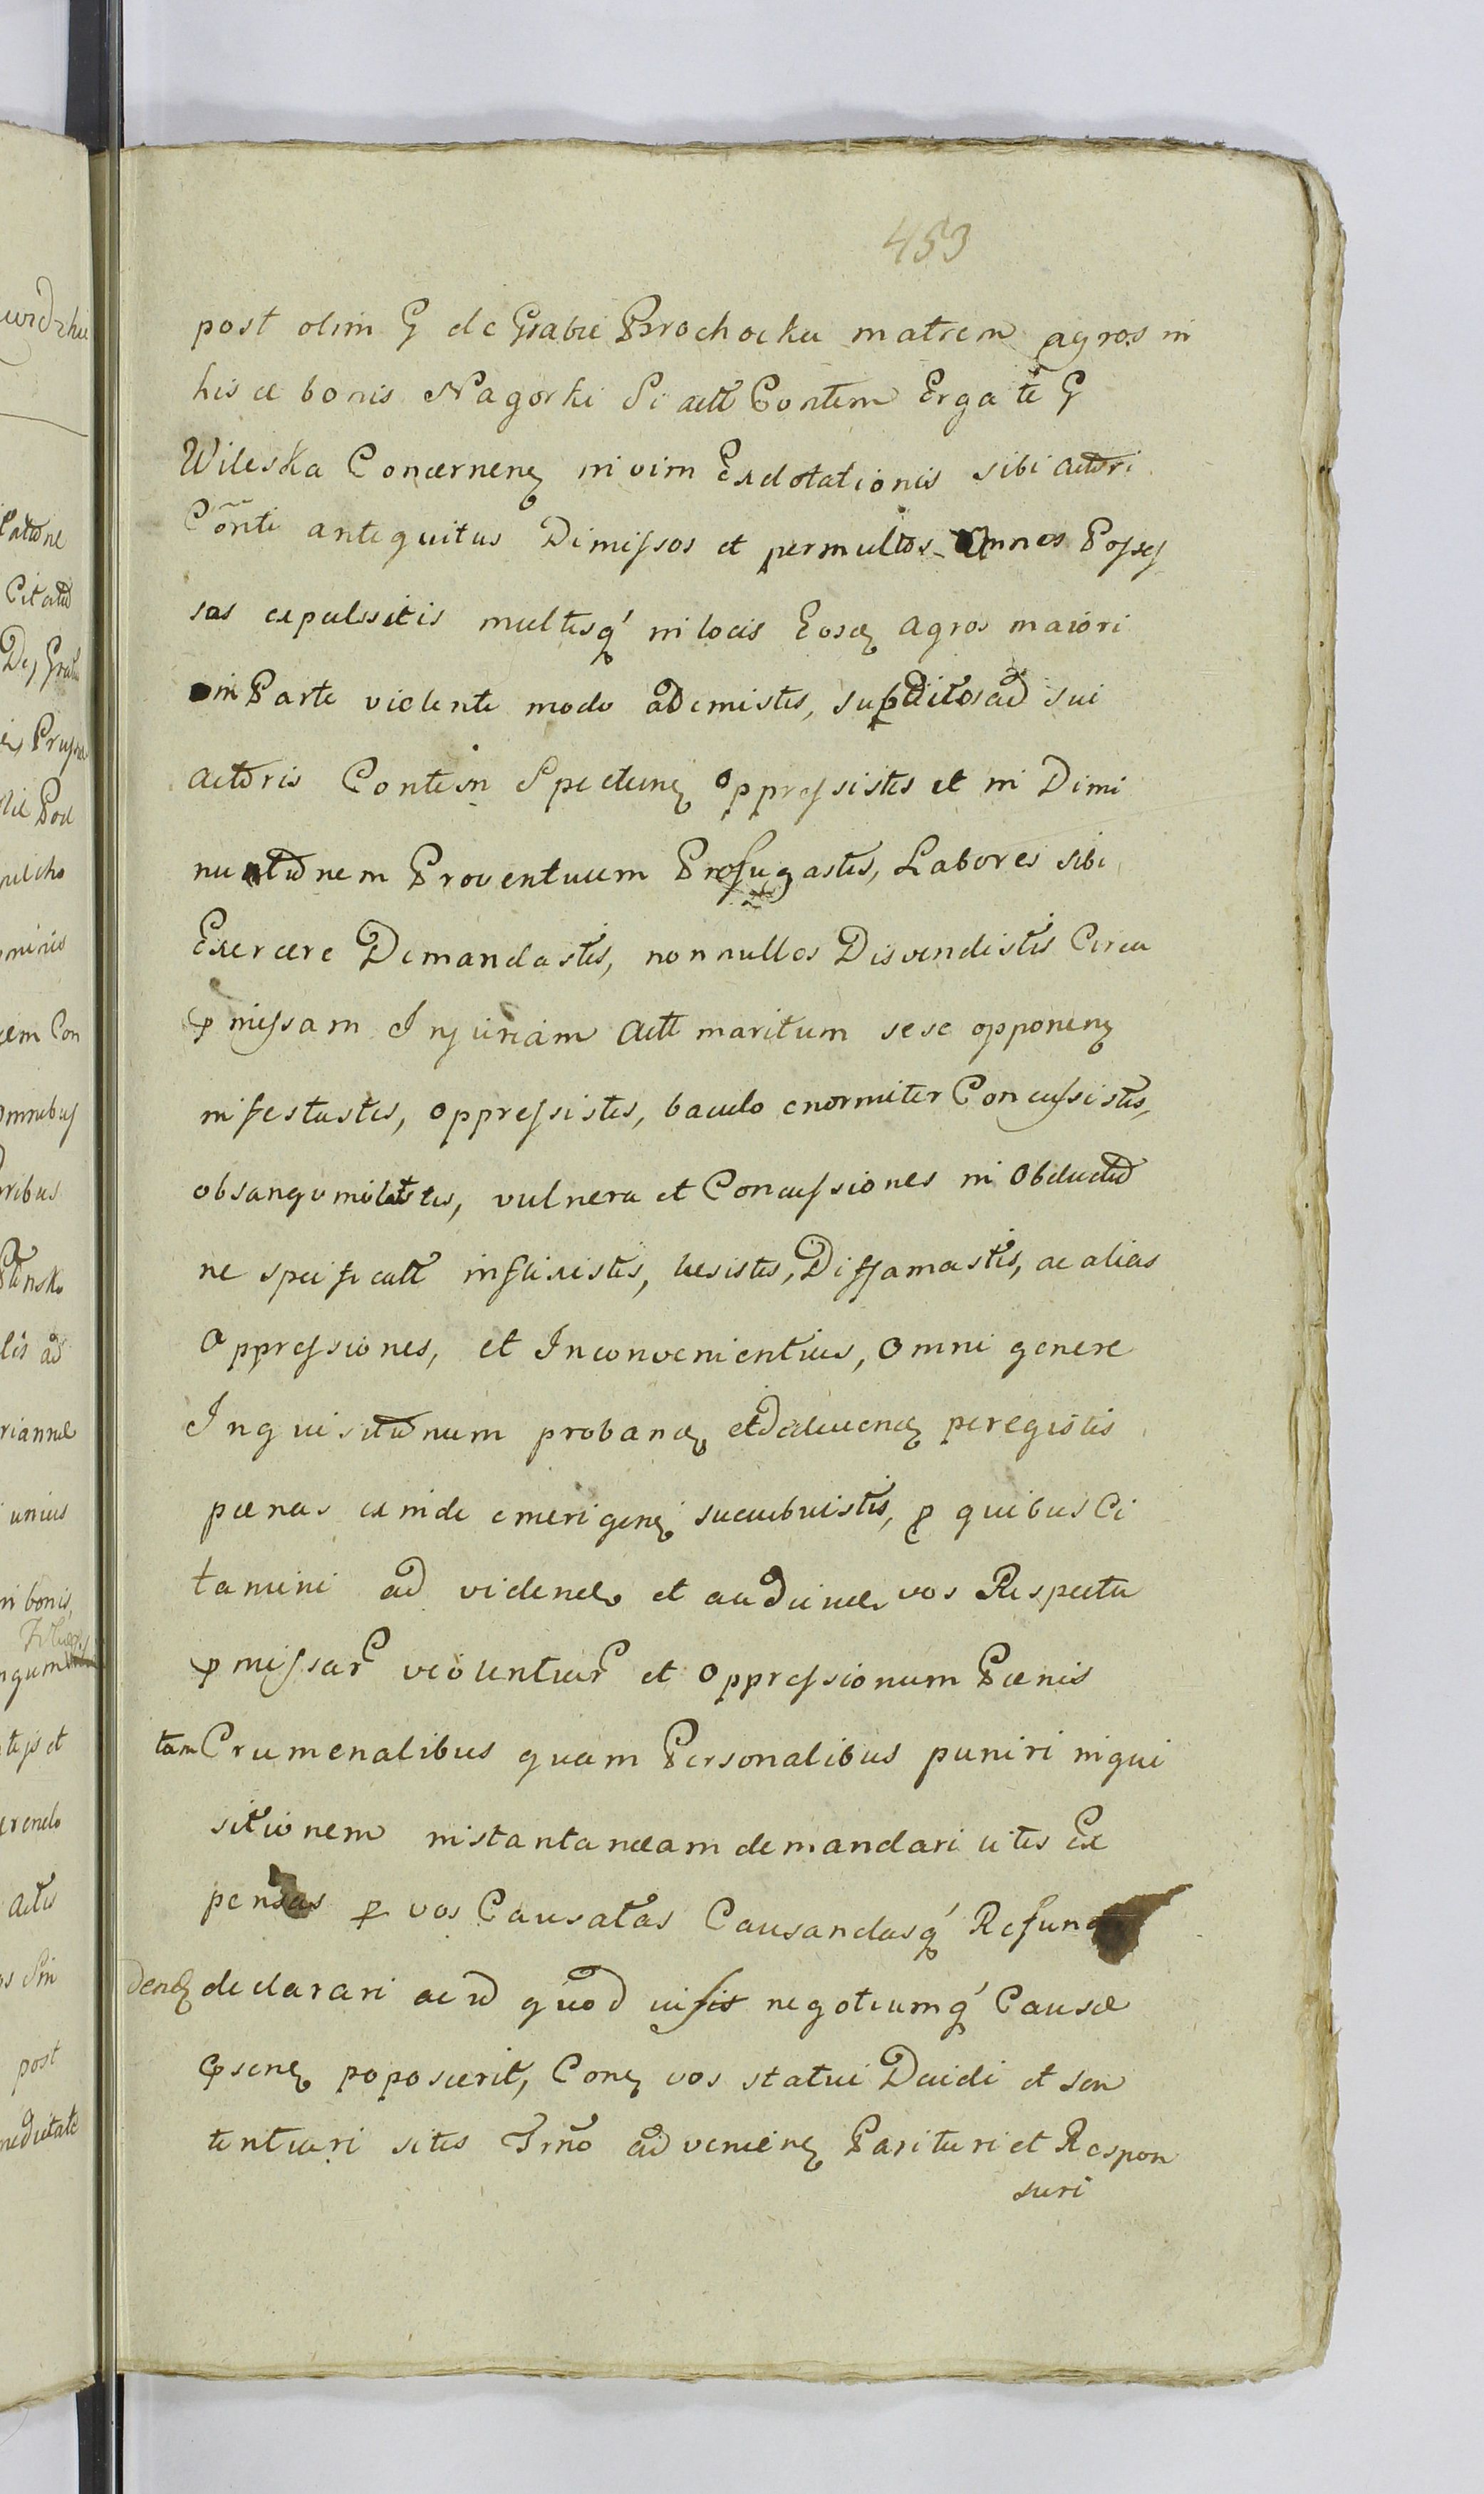 453
post olim G de Grabie Brochocka matrem agros in
hisce bonis Nagorki Si actt Contem Erga te G
Wileska Concernenꝫ in vim Exdotationis sibi actori
Cõnti antiquitus Dimissos et permultos Annos Posses
sos expulsistis multisq' in locis Eosdꝫ agros maiori
in Parte violente modo ademistis, subditos ad sui
actoris Contem Spectanꝫ oppressistis et in Dimi
nutionem Proventuum Profugastis, Labores sibi
Exercere Demandastis, nonnullos Disvendistis Circa
pmissam Injuriam actt maritum sese opponenꝫ
infestastis, oppressistis, baculo enormiter Concussistis,
obsangvinolastis, vulnera et Concussiones in Obductio
ne specificatt inflixistis, laesistis, Diffamastis, ac alias
Oppressiones, et Inconvenientias, Omni genere
Inquisitionum probandꝫ et deducendꝫ peregistis
paenas exinde emerigenꝫ succubuistis, p quibus Ci
tamini ad videndꝫ et audiendꝫ vos Respectu
pmissarꝫ violentiarꝫ et Oppressionum Paenis
tam Crumenalibus quam Personalibus puniri inqui
sitionem instantaneam demandari litis Ex
pensas p vos Causatas Causandasq' Refun
dendꝫ declarari ac id quod iusis negotiumq' Causae
psenꝫ poposcerit, Conꝫ vos statui Decidi et sen
tentiari sitis Trño advenienꝫ Parituri et Respon
suri